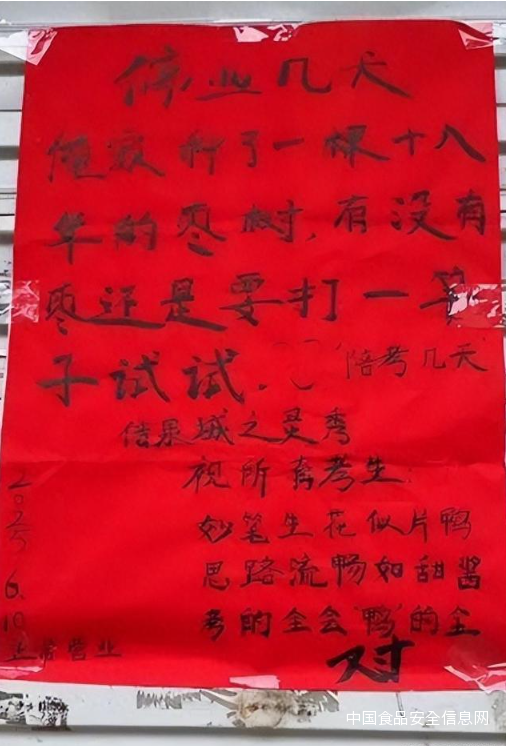 停业几天
俺家种了一棵十八
年的枣树,有没有
枣还是要打一竿
子试试.(陪考几天
借泉城之灵秀
祝所有考生:
妙笔生花似片鸭
思路流畅如甜酱
考的全会"鸭"的全
对
2025
6.10
正常营业
中国食品安全信息网